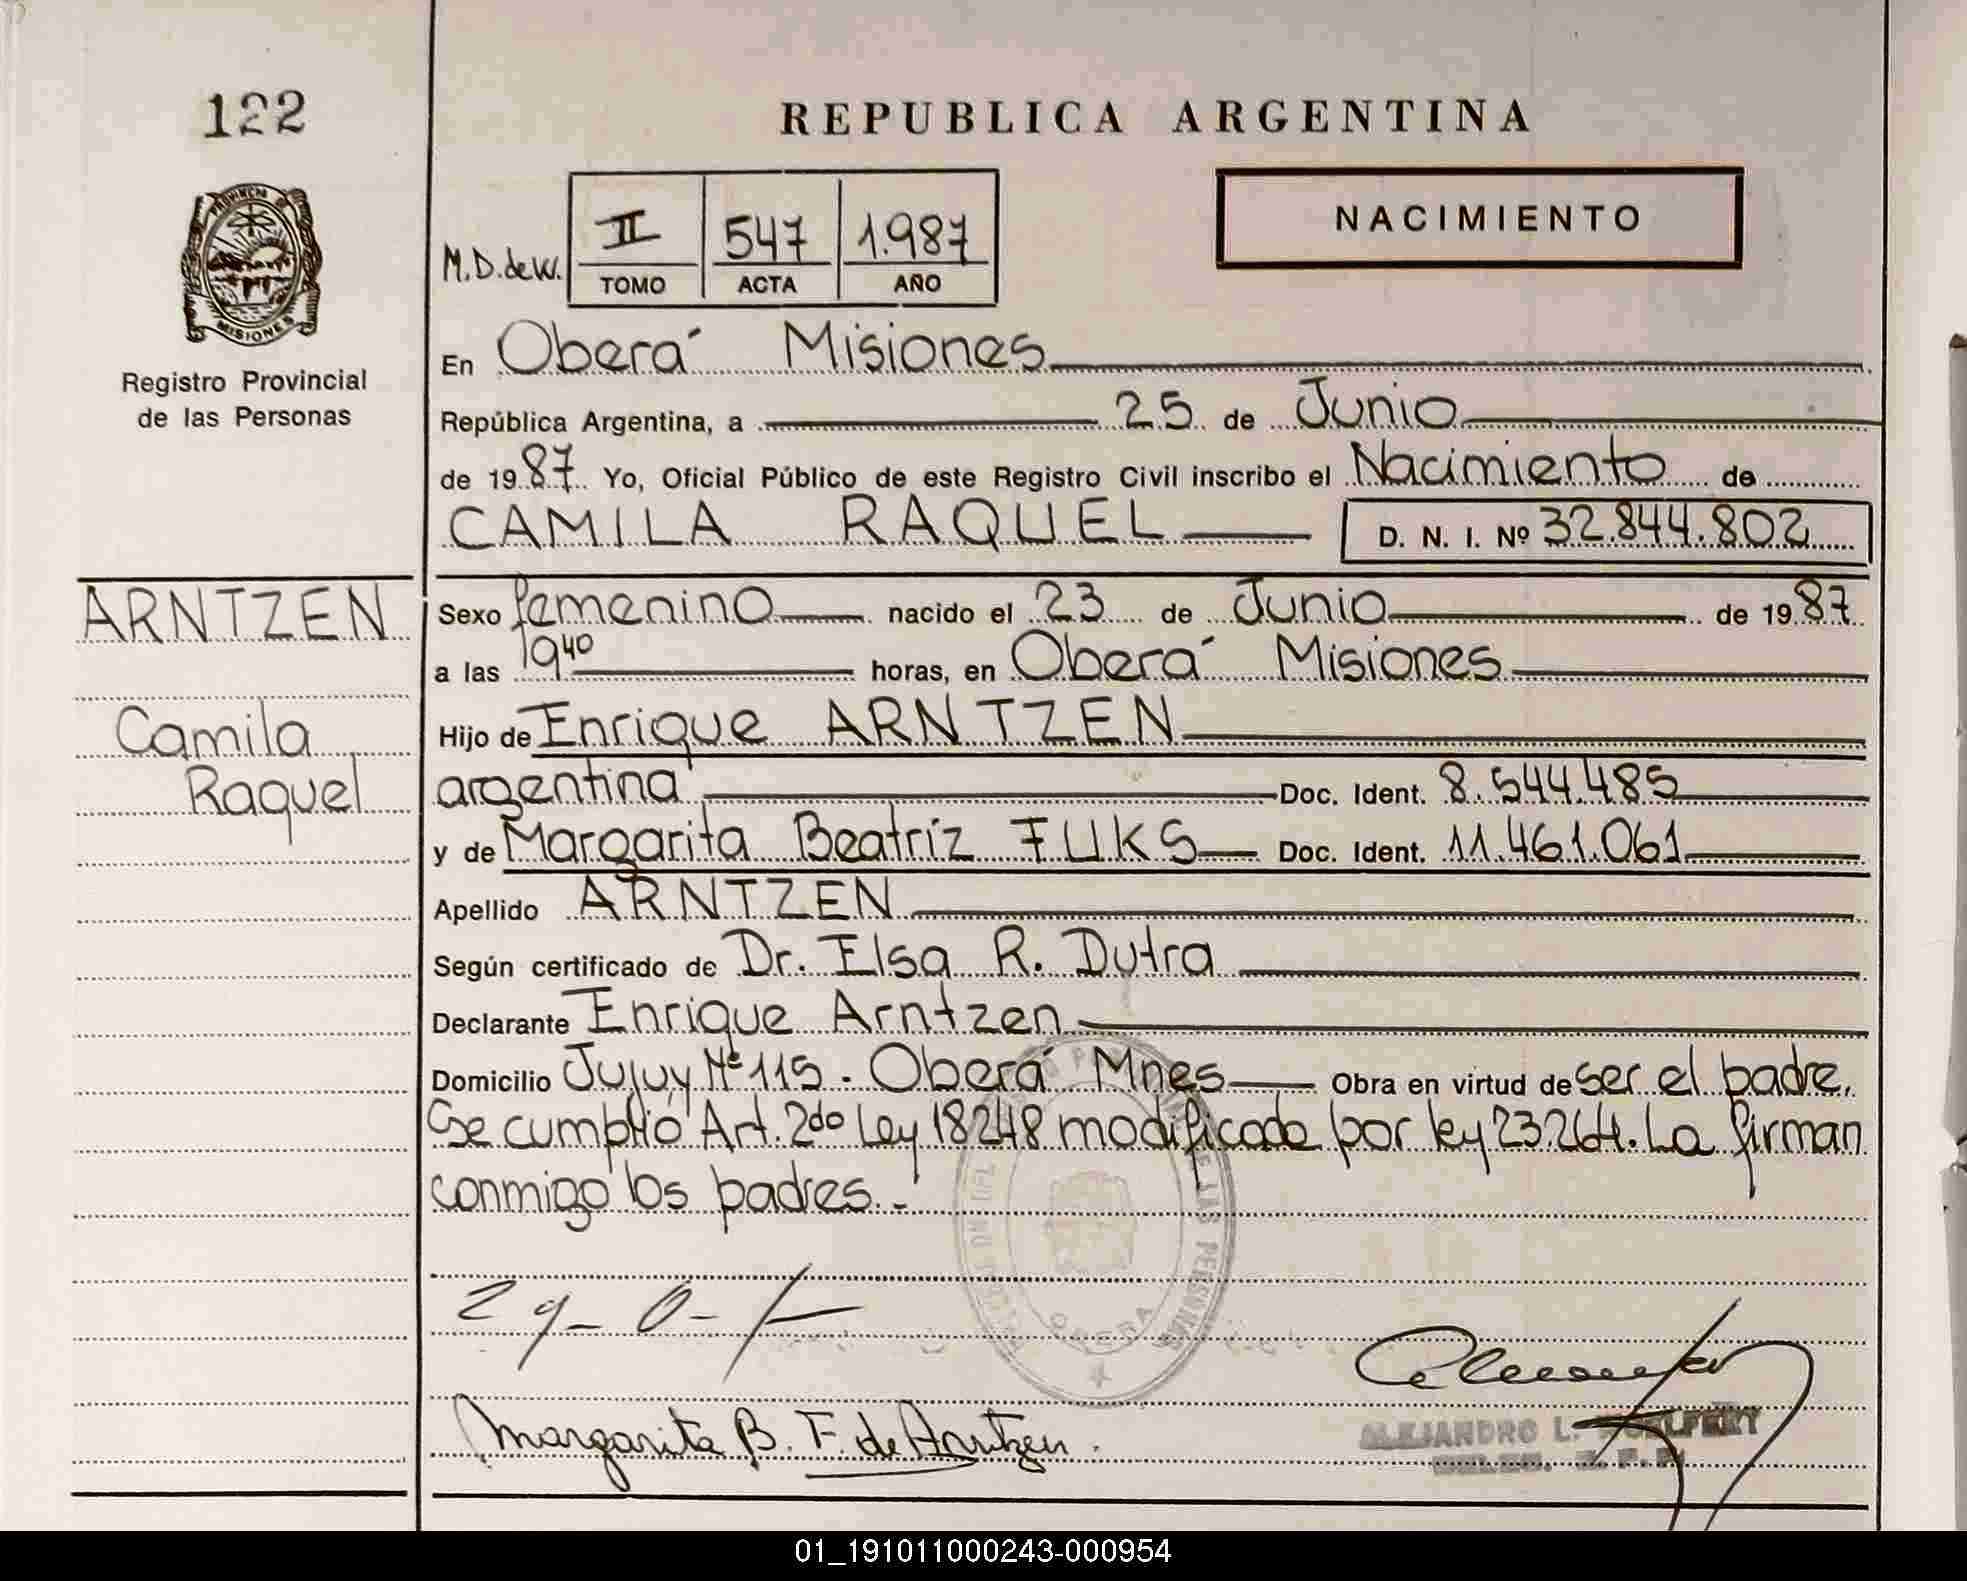 122
REPUBLICA ARGENTINA
PROVINCIA DE
MISIONES
Registro Provincial
de las Personas
M.D. de W.
II 547 1.987
TOMO ACTA AÑO
NACIMIENTO
En Oberá Misiones
República Argentina, a 25 de Junio
de 1987 Yo, Oficial Público de este Registro Civil inscribo el Nacimiento de
CAMILA RAQUEL D. N. I. Nº 32.844.802
ARNTZEN
Camila
Raquel
Sexo femenino nacido el 23 de Junio de 1987
a las 19⁴⁰ horas, en Oberá Misiones
Hijo de Enrique ARNTZEN
argentina Doc. Ident. 8.544.485
y de Margarita Beatríz FUKS Doc. Ident. 11.461.061
Apellido ARNTZEN
Según certificado de Dr. Elsa R. Dutra
Declarante Enrique Arntzen
Domicilio Jujuy Nº 115. Oberá Mnes Obra en virtud de ser el padre.
Se cumplió Art. 2do Ley 18248 modificada por ley 23.264. La firman
conmigo los padres.-
DE LAS PERSONAS
OBERA
Margarita B. F. de Arntzen.
ALEJANDRO L.
01_191011000243-000954